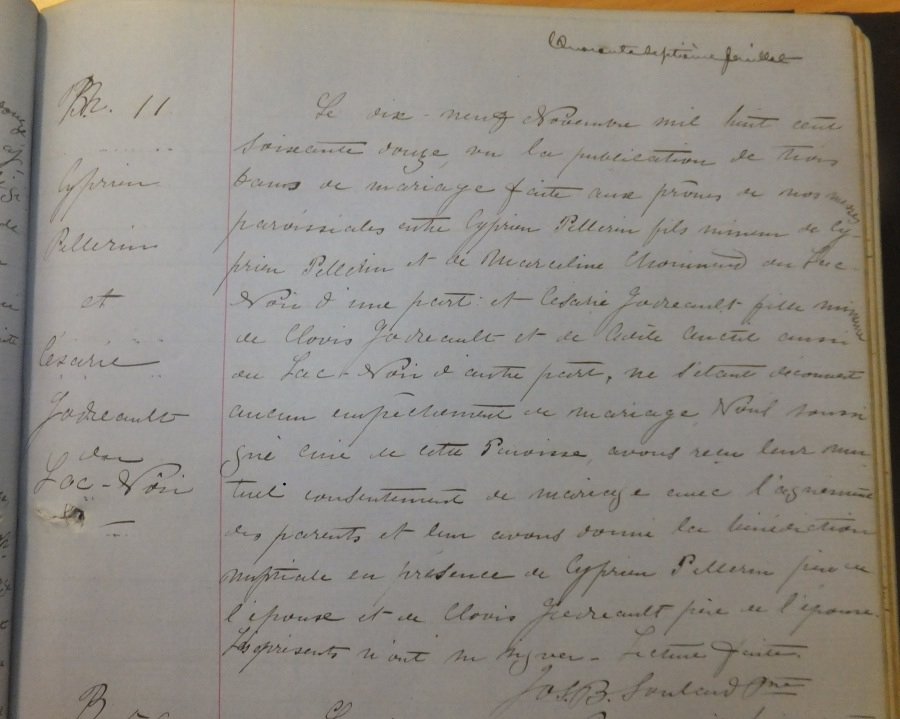 Quarante septième feuillet
M. 11
Cyprien
Pellerin
et
Césarie
Godreault
du
Lac-Noir
Le dix-neuf Novembre mil huit cent
soixante douze, vu la publication de trois
bans de mariage faite aux prônes de nos messes
paroissiales entre Cyprien Pellerin fils mineur de Cy-
prien Pellerin et de Marceline Chouinard du Lac-
Noir d'une part: et Césarie Godreault fille mineure
de Clovis Godreault et de Anctil aussi
du Lac-Noir d'autre part, ne s'étant découvert
aucun empêchement de mariage Nous soussi
gné curé de cette Paroisse avons reçu leur mu
tuel consentement de mariage avec l'agrément
des parents et leur avons donné la bénédiction
nuptiale en présence de Cyprien Pellerin père de
l'époux et de Clovis Godreault père de l'épouse.
Les présents n'ont su signer - Lecture faite.
Jos. B. Soulard Ptre
B